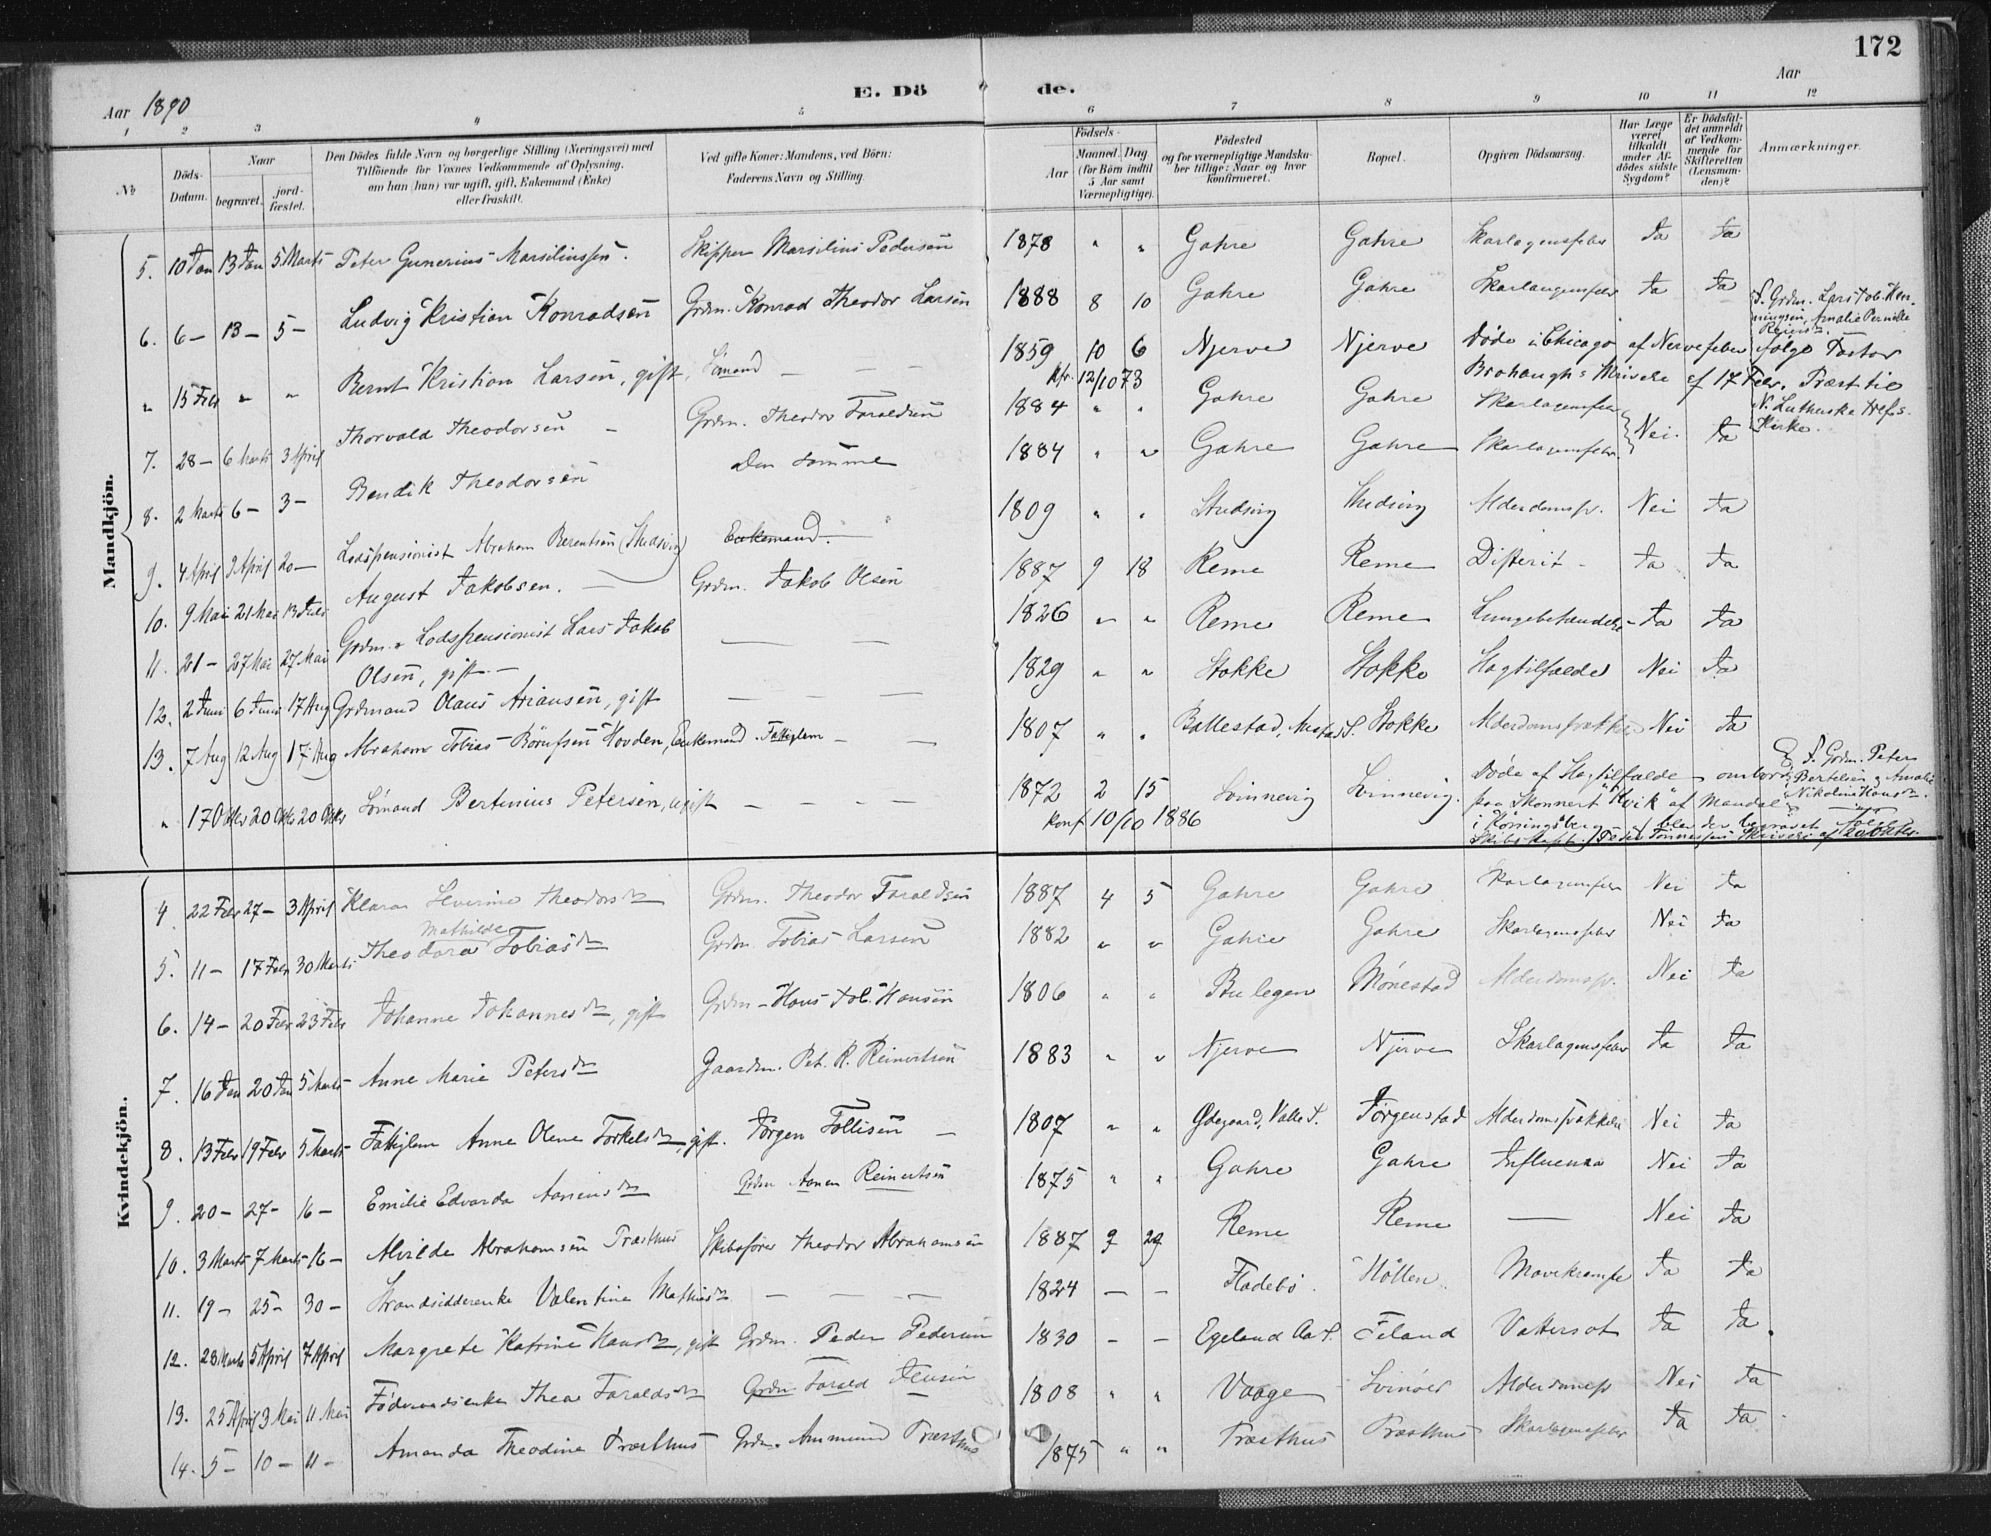 172
Aar 1890
E. Dö de.
Aar
1 2 3 4 5 6 7 8 9 10 11 12
No
Döds-Datum.
Naar
begravet. jord-fæstet.
Den Dödes fulde Navn og borgerlige Stilling (Næringsvei) med
Tilföiende for Voxnes Vedkommende af Oplysning,
om han (hun) var ugift, gift, Enkemand (Enke)
eller fraskilt.
Ved gifte Koner: Mandens, ved Börn:
Faderens Navn og Stilling.
Födsels-
Aar
Maaned. Dag
(for Börn indtil
5 Aar samt
Værnepligtige).
Födested
og for værnepligtige Mandska-
ber tillige: Naar og hvor
konfirmeret.
Bopæl.
Opgiven Dödsaarsag.
Har Læge
været
tilkaldt
under Af-
dödes sidste
Sygdom?
Er Dödsfal-
det anmeldt
af Vedkom-
mende for
Skifteretten
(Lensman-
den)?
Anmærkninger.
Mandkjön.
5. 10 Jan 13 Jan 5 Marts Peter Gunerius Marsiliussen. Skipper Marsilius Pedersen 1878 " " Gahre Gahre Skarlagensfeber Ja Ja
6. 6 – 13 – 5 – Ludvig Kristian Konradsen Grdm. Konrad Theodor Larsen 1888 8 10 Gahre Gahre Skarlagensfeber Ja Ja
" 15 Febr " " Bernt Kristian Larsen, gift, Sömand – – – 1859 10 6 Njerve Njerve Döde i Chicago af Nervefeber ifölge Pastor
Kfr. 12/10 73 Brohaughs Skrivelse af 17 Febr. Præst til
N. Lutherske Trefs.
Kirke.
S. Grdm. Lars Tob. Hen-
ningsen, Amalie Pernille
7. 28 – 6 Marts 3 April Thorvald Theodorsen – Grdm. Theodor Taraldsen 1884 " " Gahre Gahre Skarlagensfeber
8. 2 Marts 6 – 3 – Bendik Theodorsen Den samme 1884 " " Gahre Gahre Skarlagensfeber. Nei. Ja
9. 4 April 9 April 20 – Lodspensionist Abraham Berentsen (Studsvig) Enkemand. 1809 " " Studsvig Studsvig Alderdomssv. Nei Ja
10. 9 Mai 21 Mai 13 Juli August Jakobsen. – Grdm. Jakob Olsen 1887 9 18 Reme Reme Difterit – Ja Ja
11. 21 – 27 Mai 27 Mai Grdm. & Lodspensionist Lars Jakob
Olsen, gift – – – 1826 " " Reme Reme Lungebetændelse – Ja Ja
12. 2 Juni 6 Juni 17 Aug Grdmand Olaus Ariansen, gift – – – 1829 " " Stokke Stokke Slagtilfælde Nei Ja
13. 7 Aug 12 Aug 17 Aug Abraham Tobias Börufsen Hovden, Enkemand. Fattiglem – – 1807 " " Ballestad, Stokke Alderdomssvækkelse Nei Ja
" 17 Oktbr 20 Oktbr 20 Oktbr Sömand Bertinius Petersen, ugift – – – – 1872 2 15 Svinnevig Svinnevig. Döde af Slagtilfælde ombord
Konf 10/10 1886 paa Skonnert "Kvik" af Mandal
i – blev der begravet ifölge
Skibskapt. Peder Tönnessens Skrivelse af 20 Oktbr.
S. Grdm. Peter
Bertelsen & Amalie
Nikoline Hansdtr.
Kvindekjön.
4. 22 Febr 27 – 3 April Klara Severine Theodorsdtr Grdm. Theodor Taraldsen 1887 4 5 Gahre Gahre Skarlagensfeber Nei Ja
Mathilde
5. 11 – 17 Febr 30 Marts Theodora Tobiasdtr Grdm. Tobias Larsen 1882 " " Gahre Gahre Skarlagensfeber Nei Ja
6. 14 – 20 Febr 23 Febr Johanne Johannesdtr, gift Grdm – Hans Tob. Hansen 1806 " " Bulegen Mönestad Alderdomssv. Nei Ja
7. 16 Jan 20 Jan 5 Marts Anne Marie Petersdtr Gaardm. Pet. R. Reinertsen 1883 " " Njerve Njerve Skarlagensfeber Ja Ja
8. 13 Febr 19 Febr 5 Marts Fattiglem Anne Olene Torkelsdtr, gift. Jörgen Tollisen – 1807 " " Ödegaard, Valle S. Jörgenstad Alderdomssvækkelse Nei Ja
9. 20 – 27 – 16 – Emilie Edvarda Aanensdtr Grdm Aanen Reinertsen 1875 " " Gahre Gahre Influenza Nei Ja
10. 3 Marts 7 Marts 16 – Alvilde Abrahamsen Træsthus Skibsförer Theodor Abrahamsen 1887 9 29 Reme Reme – Nei Ja
11. 19 – 25 – 30 – Strandsidderenke Valentine Mathiasdtr – – – 1824 – – Fladebö. Höllen Mavekrampe Ja Ja
12. 28 Marts 5 April 7 April Margrete Katrine Hansdtr, gift Grdm. Peder Pedersen 1830 – – Egeland Aa S. Feland Vattersot Ja Ja.
13. 25 April 3 Mai 11 Mai Föderaadsenke Thea Taraldsdtr Grdm Tarald Jensen 1808 " " Vaage Svinöer Alderdomssv Nei Ja
14. 5 – 10 – 11 – Amanda Theodine Træsthus Grdm. Ammund Træsthus 1875 " " Træsthus Træsthus Skarlagensfeber Ja Ja